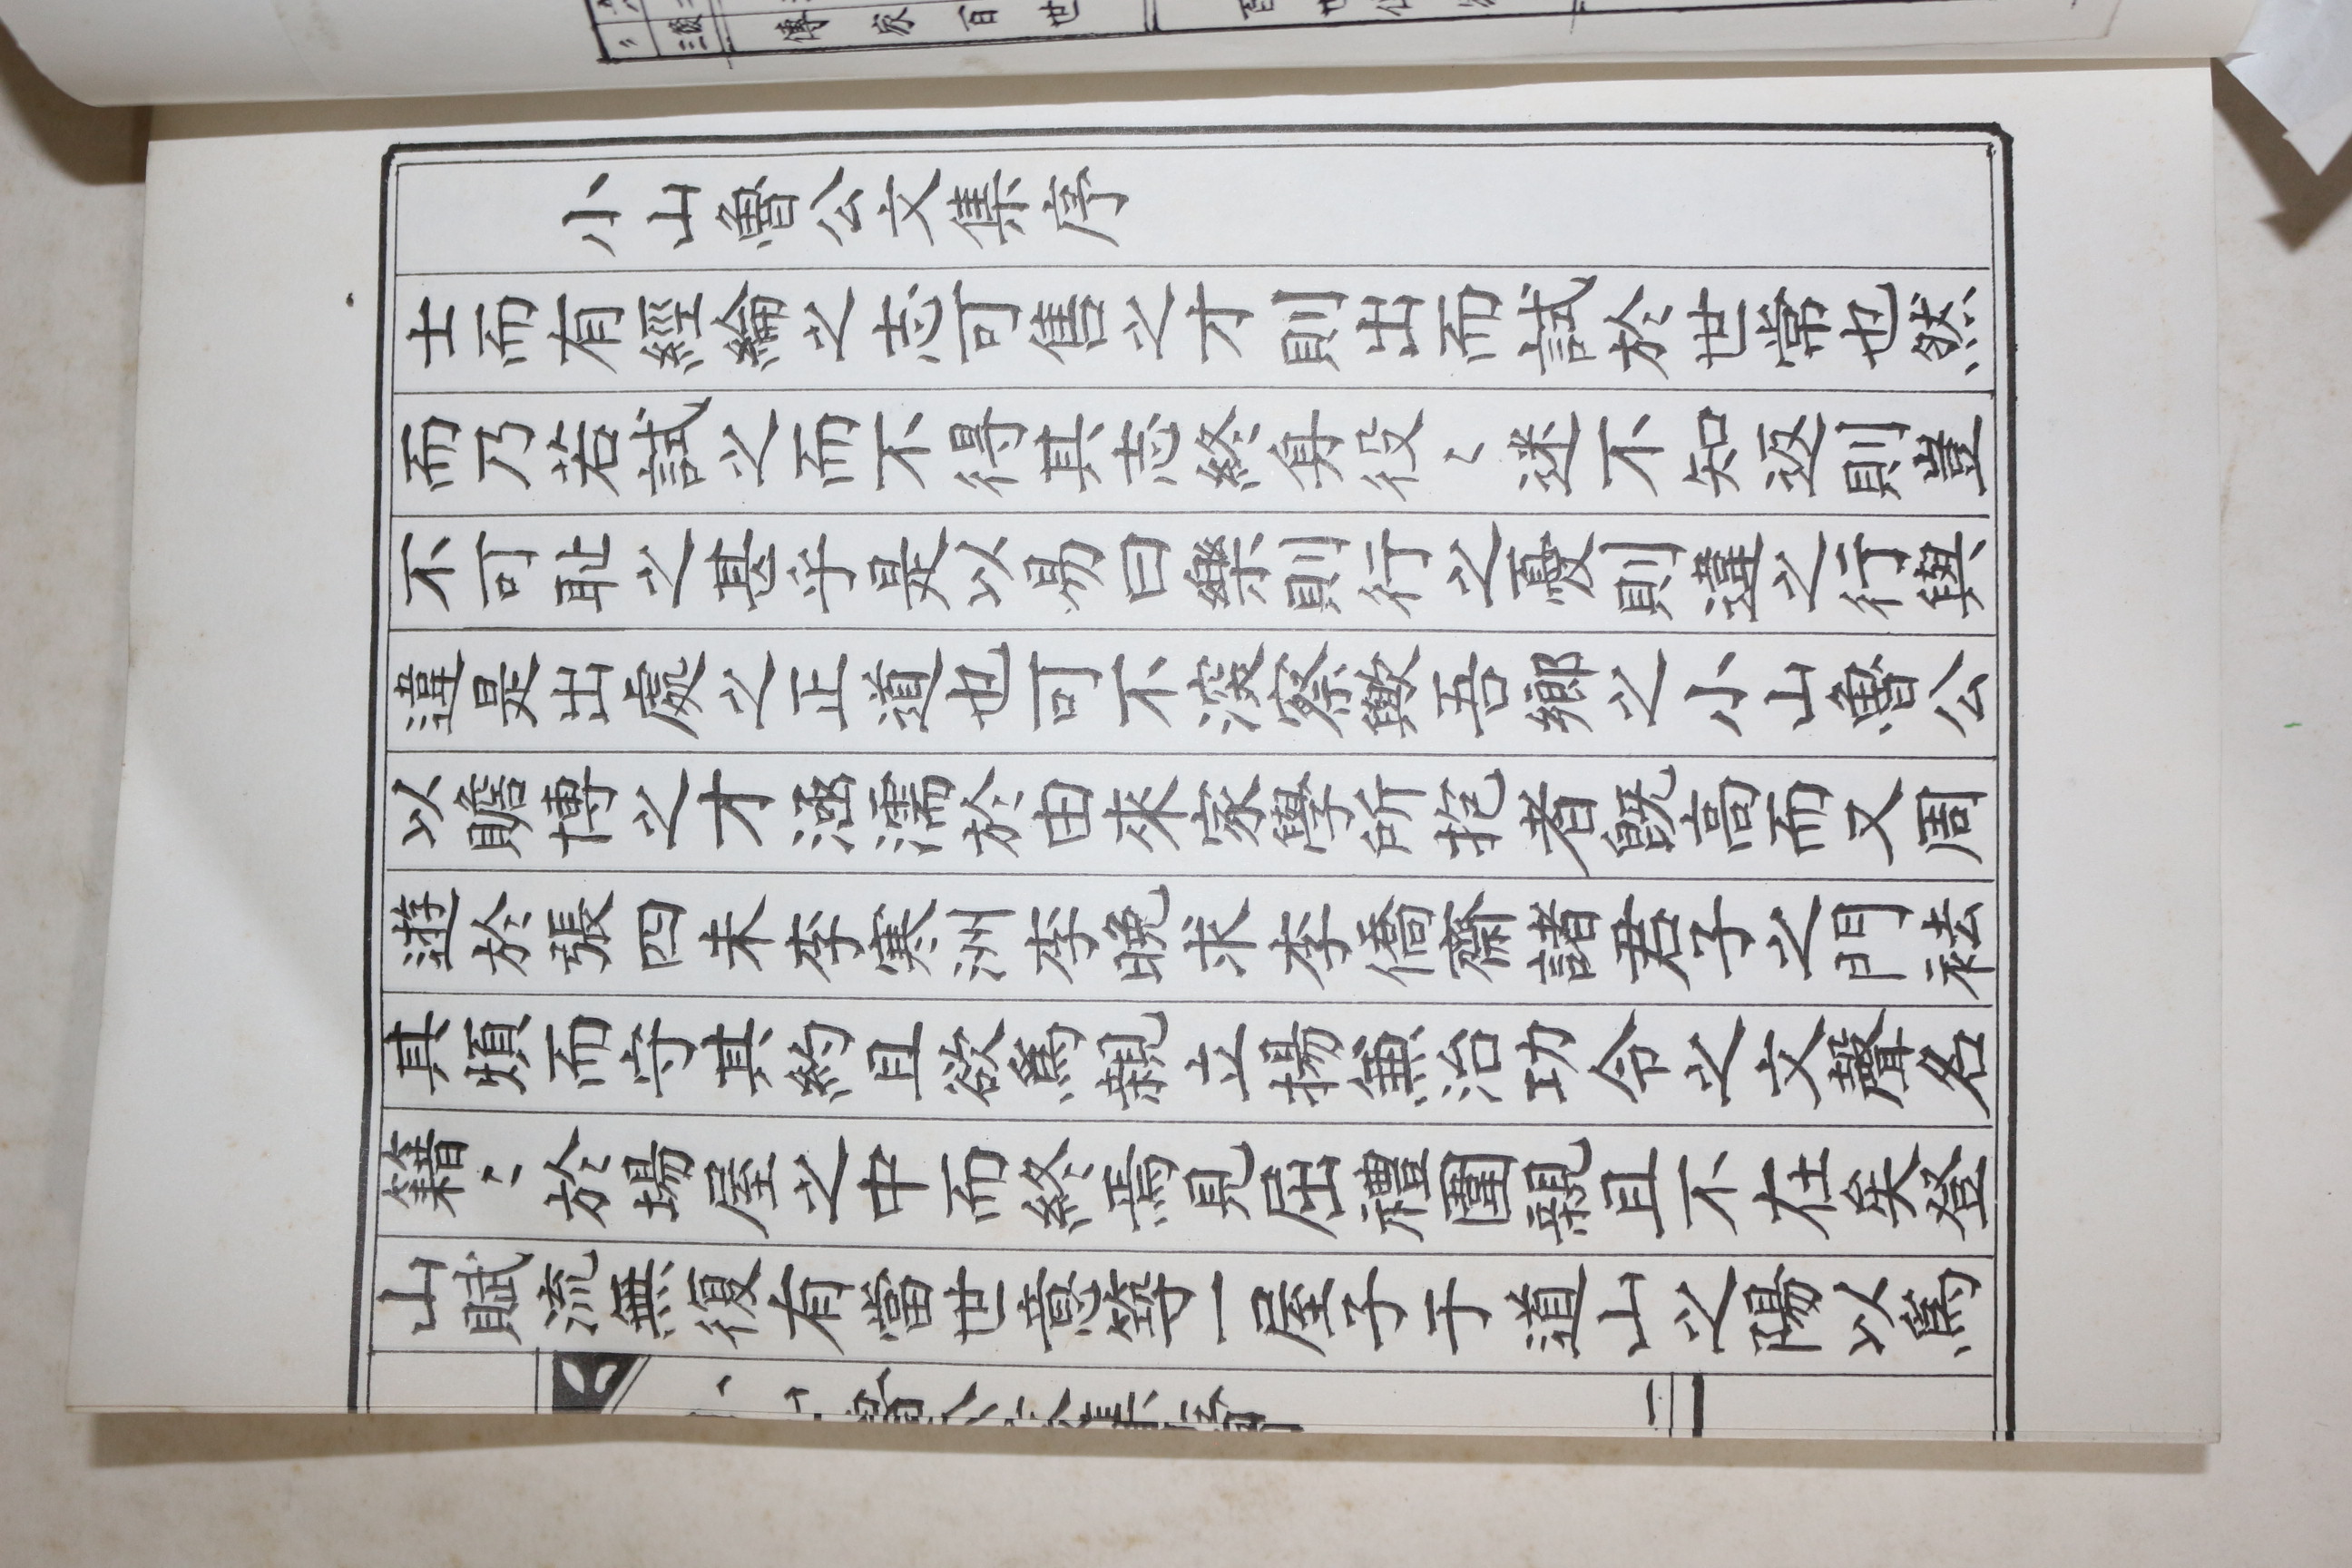 小山魯公文集序
士而有經綸之志可售之才則出而試於世常也然
而乃若試之而不得其志終身役〻迷不知返則豈
不可恥之甚乎是以易曰樂則行之憂則違之行與
違是出處之正道也可不深察歟吾鄉之小山魯公
以贍博之才涵濡於由來家學所抱者旣高而又周
遊於張四未李寒洲李晚求李僑齋諸君子之門祛
其煩而守其約且欲爲親立揚兼治功令之文聲名
籍〻於場屋之中而終焉見屈禮圍親且不在矣登
山賦流無復有當世意築一屋子于道山之陽以爲
傳家百世